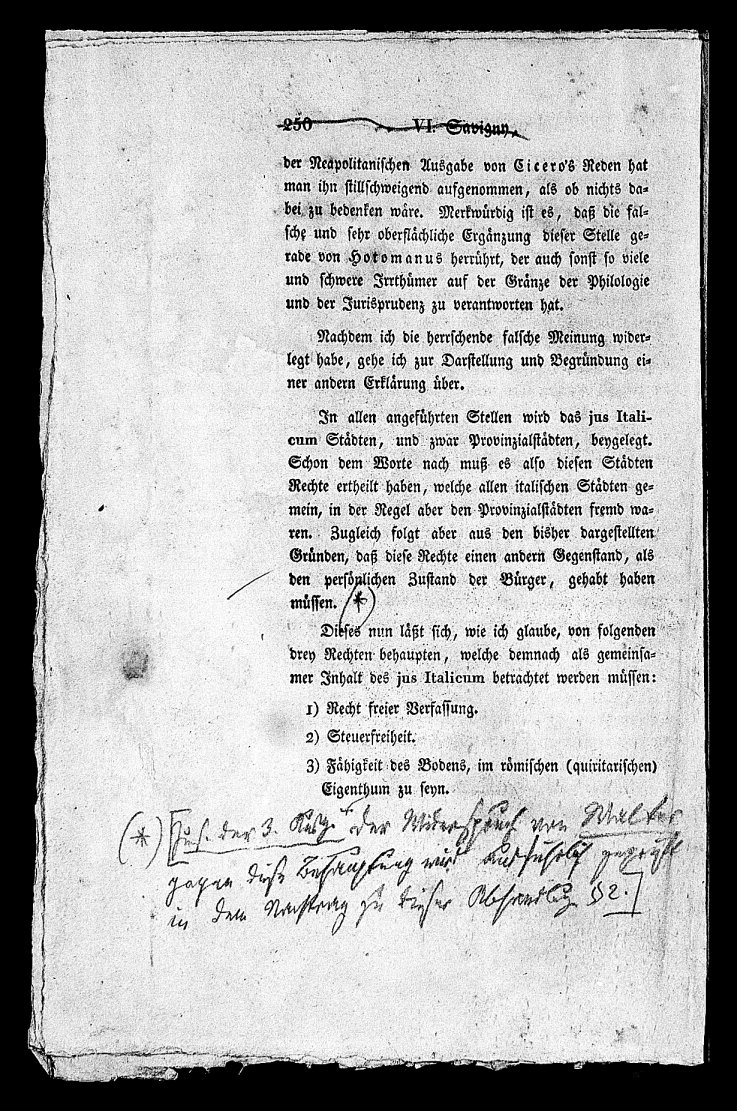 250 VI. Savigny,
der Neapolitanischen Ausgabe von Cicero's Reden hat
man ihn stillschweigend aufgenommen, als ob nichts da-
bei zu bedenken wäre. Merkwürdig ist es, daß die fal-
sche und sehr oberflächliche Ergänzung dieser Stelle ge-
rade von Hotomanus herrührt, der auch sonst so viele
und schwere Irrthümer auf der Gränze der Philologie
und der Jurisprudenz zu verantworten hat.
Nachdem ich die herrschende falsche Meinung wider-
legt habe, gehe ich zur Darstellung und Begründung ei-
ner andern Erklärung über.
In allen angeführten Stellen wird das jus Itali-
cum Städten, und zwar Provinzialstädten, beygelegt.
Schon dem Worte nach muß es also diesen Städten
Rechte ertheilt haben, welche allen italischen Städten ge-
mein, in der Regel aber den Provinzialstädten fremd wa-
ren. Zugleich folgt aber aus den bisher dargestellten
Gründen, daß diese Rechte einen andern Gegenstand, als
den persönlichen Zustand der Bürger, gehabt haben
müssen. (*)
Dieses nun läßt sich, wie ich glaube, von folgenden
drey Rechten behaupten, welche demnach als gemeinsa-
mer Inhalt des jus Italicum betrachtet werden müssen:
1) Recht freier Verfassung.
2) Steuerfreiheit.
3) Fähigkeit des Bodens, im römischen (quiritarischen)
Eigenthum zu seyn.
(*) [Zus. der 3. Ausg. Der Widerspruch von Walter
gegen diese Behauptung wird ausführlich geprüft
in dem Nachtrag zu dieser Abhandlung §2.]